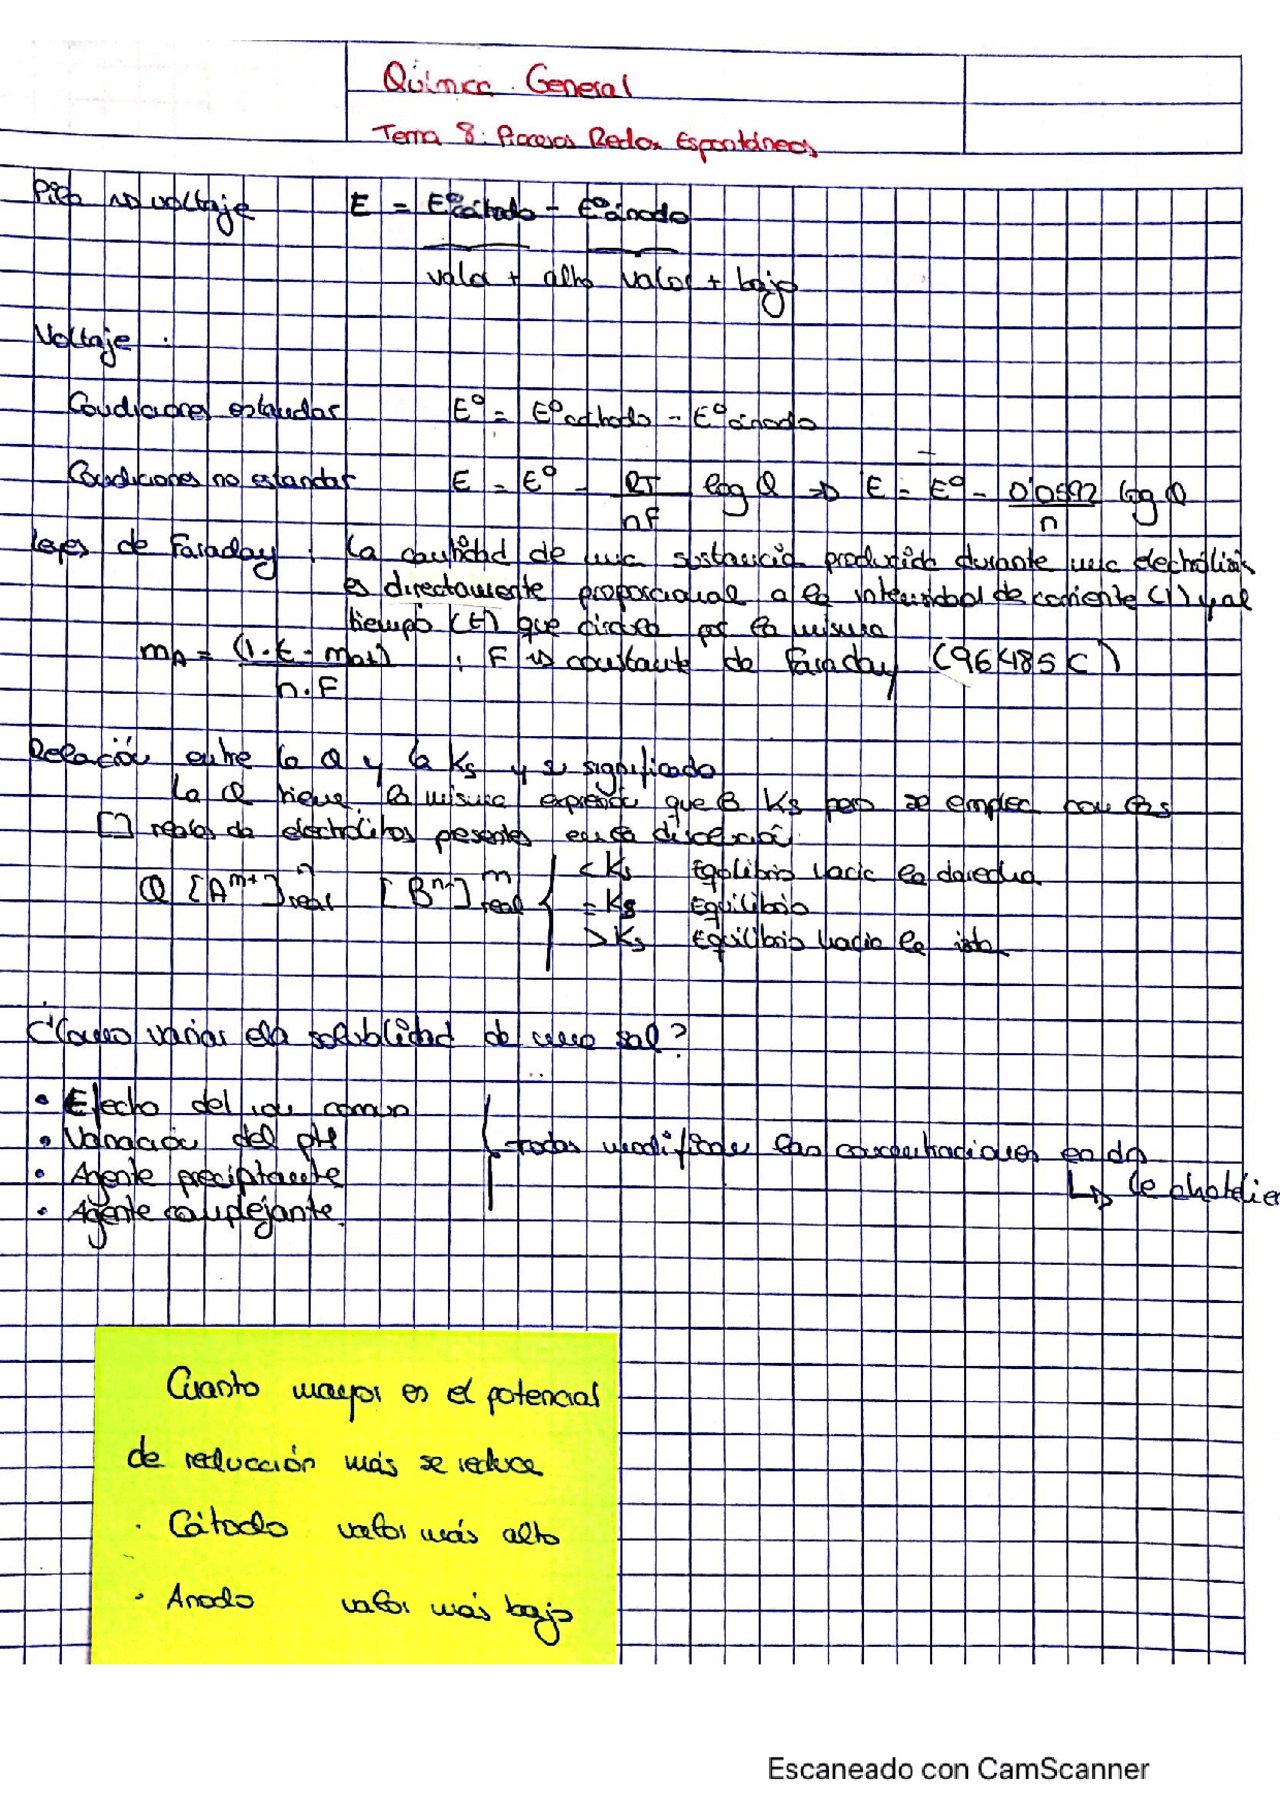 Química General
Tema 8: Procesos Redox Espontáneos
Pila → voltaje E = E°cátodo - E°ánodo
valor + alto valor + bajo
Voltaje:
Condiciones estandar E° = E°cathodo - E°ánodo
Condiciones no estandar E = E° - RT/nF log Q ⇒ E = E° - 0'0592/n log Q
Leyes de Faraday: La cantidad de una sustancia producida durante una electrólisis
es directamente proporcional a la intensidad de corriente (I) y al
tiempo (t) que circula por la misma
mA = (I·t·mat)/n·F ; F → constante de Faraday (96485 C)
Relación entre la Q y la Ks y su significado
La Q tiene la misma expresión que la Ks pero se emplea con las
[] reales de electrolitos presentes en la disolución:
Q [A^m+]^n real [B^n-]^m real { < Ks Eqolibrio hacia la derecha
= Ks Equilibrio
> Ks Equilibrio hacia la izda
¿Como variar la solubilidad de una sal?
• Efecho del ion comun
• Variación del pH { todas modifican las concentraciones en dn
• Agente precipitante ↳ Le chatelier
• Agente complejante.
Cuanto mayor es el potencial
de reducción más se reduce
· Cátodo valor más alto
· Anodo valor más bajo
Escaneado con CamScanner